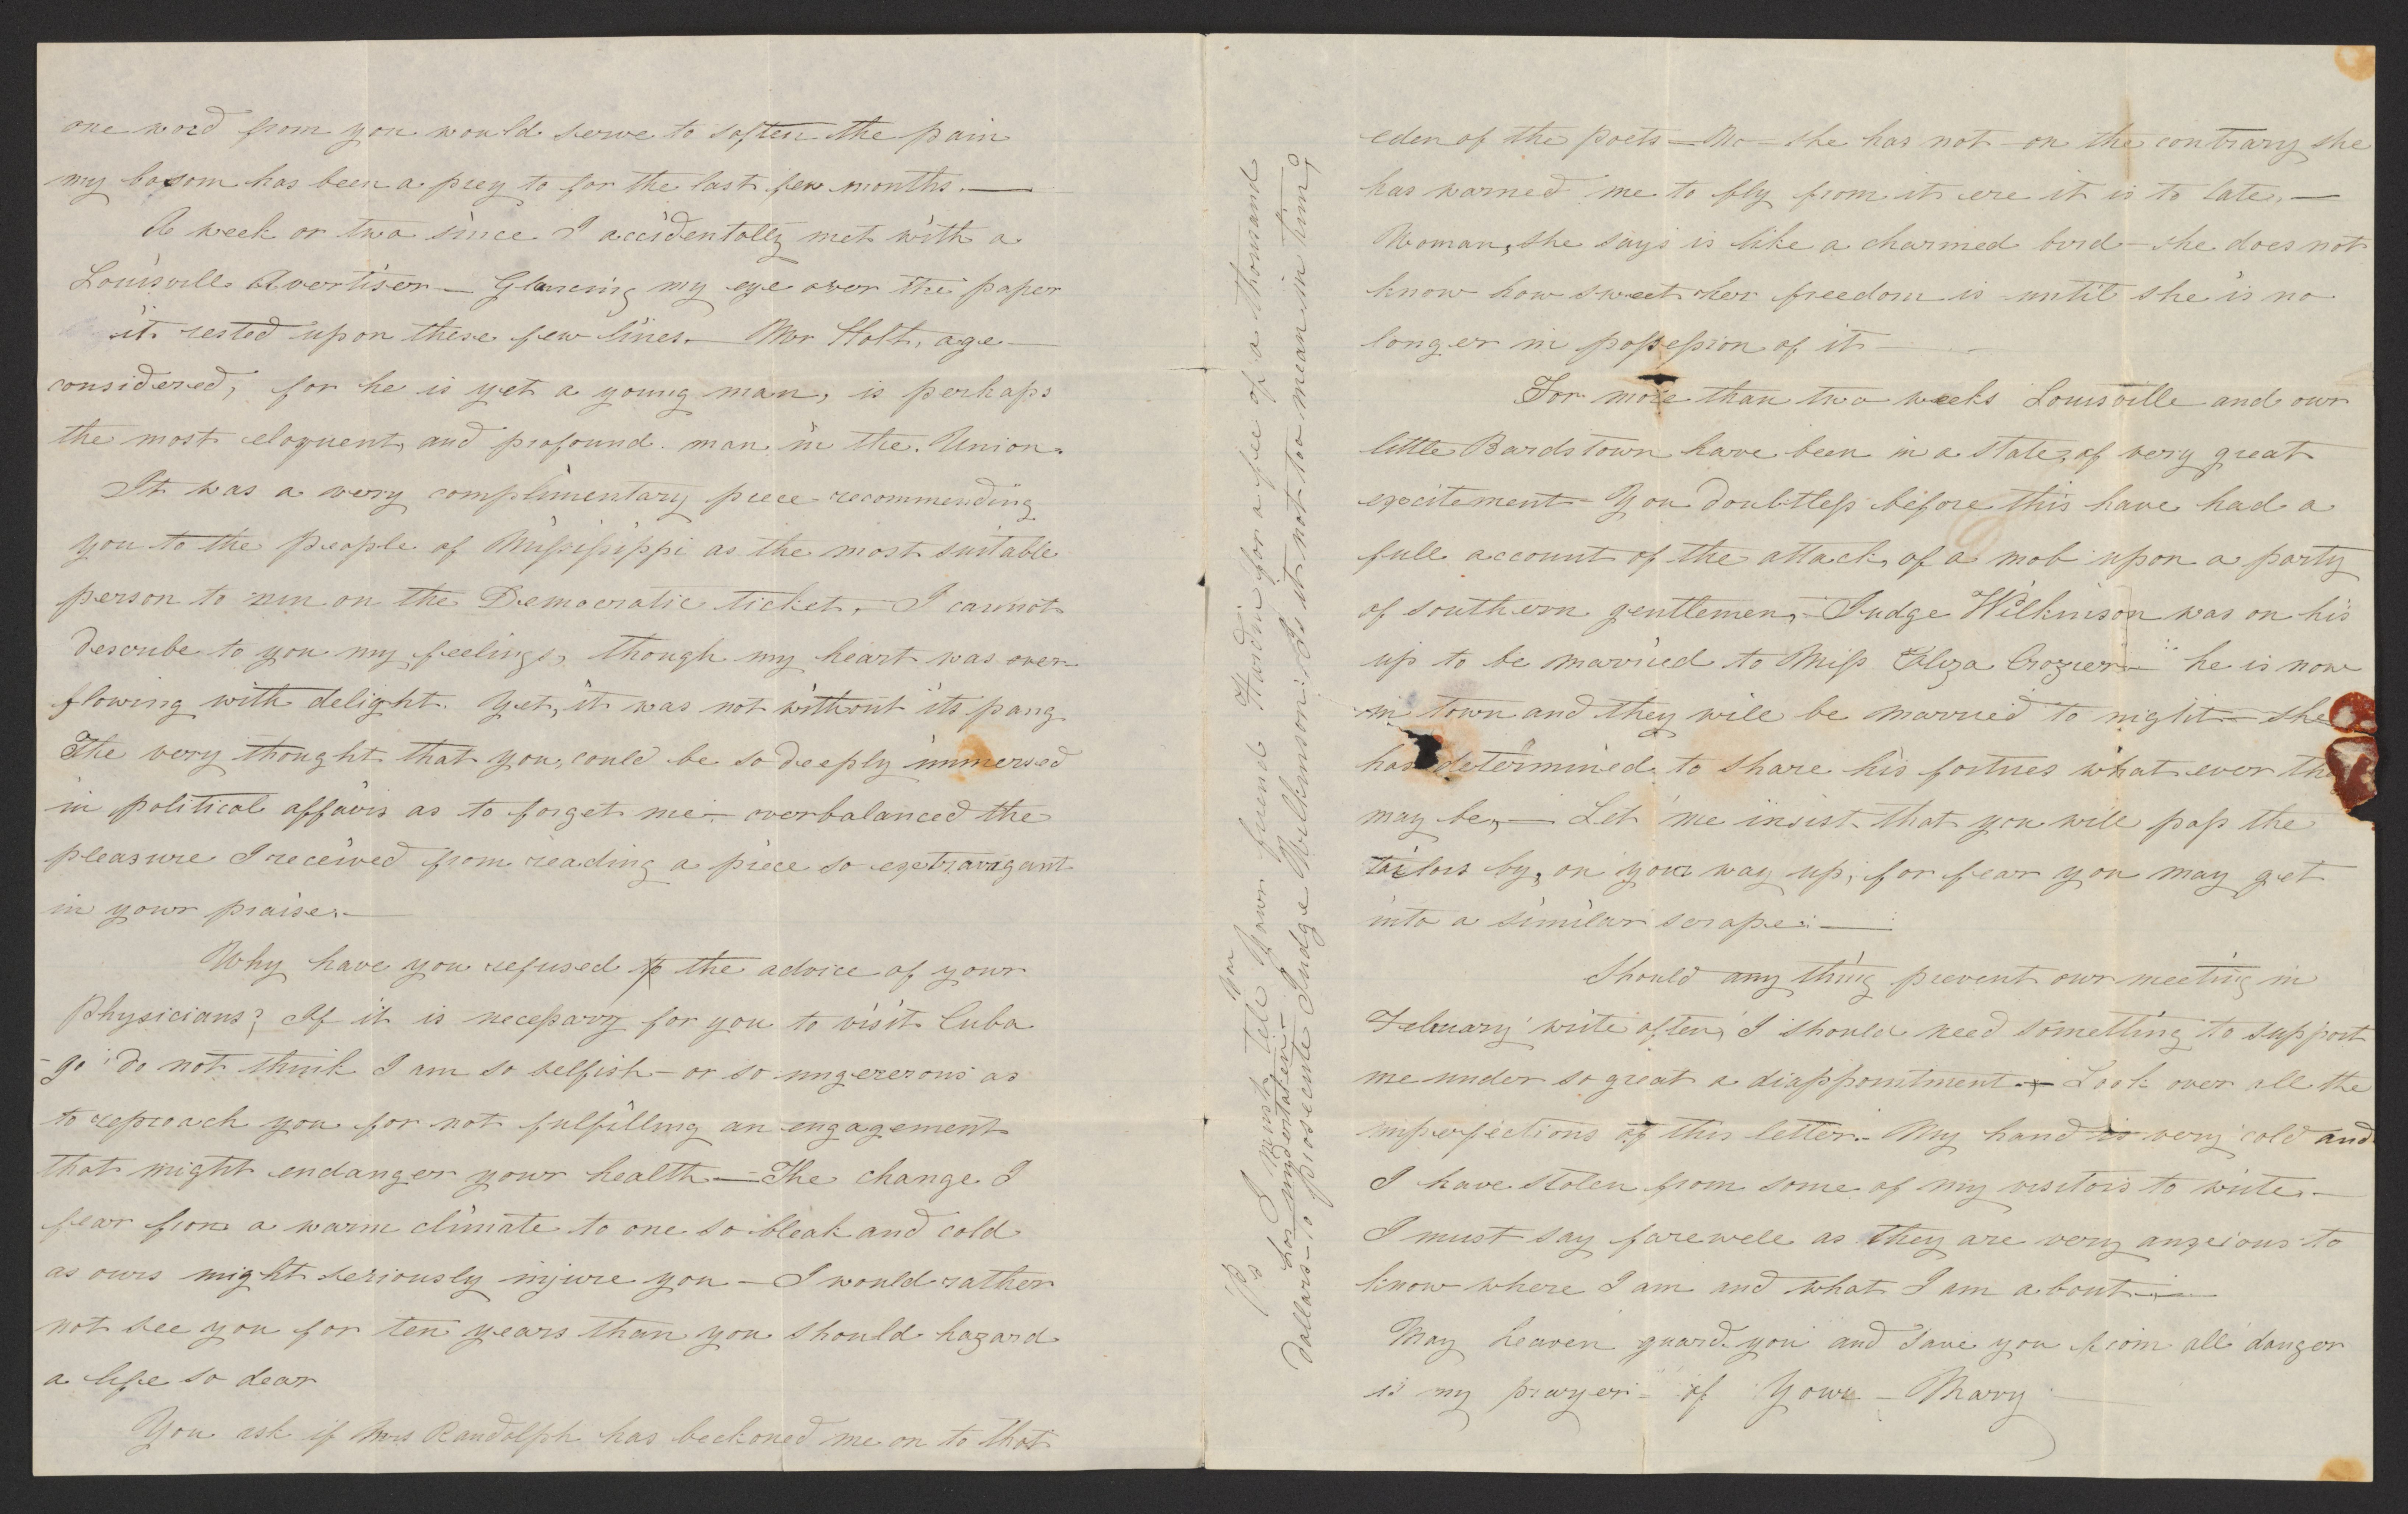 one word from you would serve to soften the pain
my bosom has been a prey to for the last few months.—
A week or two since I accidentally met with a
Louisville Avertiser — Glancing my eye over the paper
it rested upon these few lines.— Mr Holt, age—
considered, for he is yet a young man, is perhaps
the most eloquent, and profound man in the Union.
It was a very complimentary piece recommending
you to the people of Mississippi as the most suitable
person to run on the Democratic ticket,— I cannot
describe to you my feelings, though my heart was over
flowing with delight. Yet, it was not without its pang.
The very thought that you, could be so deeply immersed
in political affairs as to forget me— overbalanced the
pleasure I received from reading a piece so extravigant
in your praise.—
Why have you refused the advice of your
Physicians? If it is necessary for you to visit Cuba
- go do not think I am so selfish - or so ungenerous as
to reproach you for not fulfilling an engagement
that might endanger your health — The change I
fear from a warm climate to one so bleak and cold
as ours might seriously injure you — I would rather
not see you for ten years than you should hazard
a life so dear
You ask if Mrs Randolph has beckoned me on to that
eden of the poets — No — she has not - on the contrary she
has warned me to fly from it ere it is to late.—
Woman, she says is like a charmed bird - she does not
know how sweet her freedom is until she is no
longer in possession of it —
For more than two weeks Louisville and our
little Bardstown have been in a state, of very great
excitement - You doubtless before this have had a
full account of the attack, of a mob upon a party
of southern gentlemen,- Judge Wilkinson was on his
up to be married to Miss Eliza Crozier— he is now
in town and they will be married to night — she
has determined to share his fortues what ever th
may be,— Let me insist that you will pass the
tailors by, on your way up, for fear you may get
into a similar scrape: —
Should any thing prevent our meeting in
February write often, I should need something to support
me under so great a diappointment.— Look over all the
imperfections of this letter.- My hand is very cold and
I have stolen from some of my visitors to write.—
I must say farewell as they are very anxious to
know where I am and what I am about.—
May heaven guard you and save you from all danger
is my prayer - of Your - Mary
Ps I must tell you Your friend Hardin for a fee of a thousand
dollars - has undertaken
to prosecute Judge Wilkenson: Is it not too mean in him?